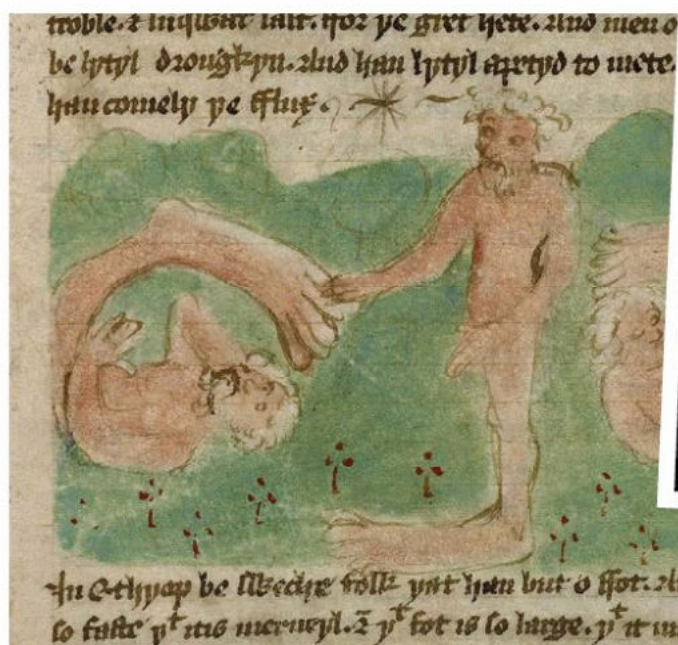 troble. & sumqwat salt. ffor ye gret hete. And men o
be lytyl drougkyn. And han lytyl apetyd to mete.
han comely ye fflux.
In Ethyop be sweche folk yat han but o ffot.
so faste yt itis merueyl. & yt fot is so large. yt it